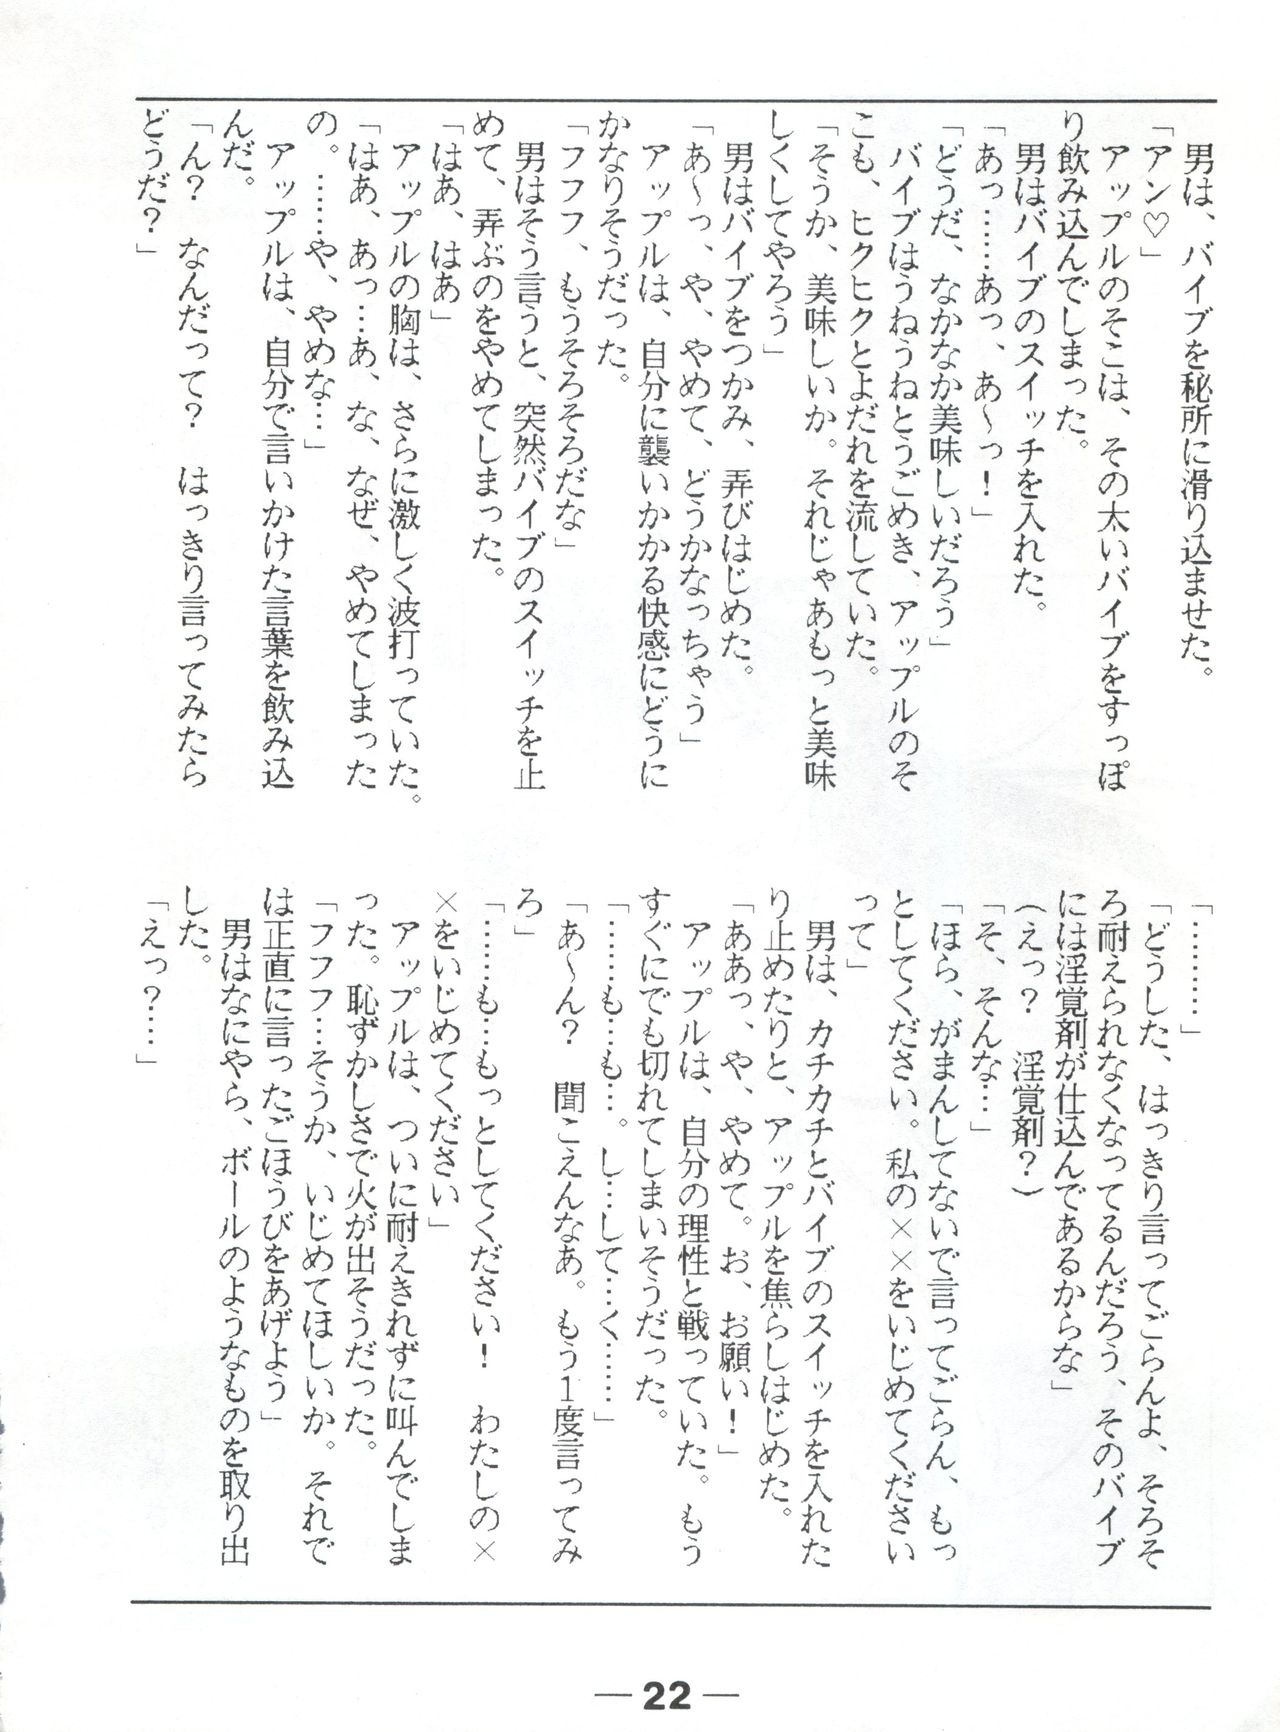 男は、バイブを秘所に滑り込ませた。
「アン♡」
アップルのそこは、その太いバイブをすっぽ
り飲み込んでしまった。
男はバイブのスイッチを入れた。
「あっ……あっ、あ～っ！」
「どうだ、なかなか美味しいだろう」
バイブはうねうねとうごめき、アップルのそ
こも、ヒクヒクとよだれを流していた。
「そうか、美味しいか。それじゃあもっと美味
しくしてやろう」
男はバイブをつかみ、弄びはじめた。
「あ～っ、や、やめて、どうかなっちゃう」
アップルは、自分に襲いかかる快感にどうに
かなりそうだった。
「フフフ、もうそろそろだな」
男はそう言うと、突然バイブのスイッチを止
めて、弄ぶのをやめてしまった。
「はあ、はあ」
アップルの胸は、さらに激しく波打っていた。
「はあ、あっ…あ、な、なぜ、やめてしまった
の。……や、やめな…」
アップルは、自分で言いかけた言葉を飲み込
んだ。
「ん？　なんだって？　はっきり言ってみたら
どうだ？」
「………」
「どうした、はっきり言ってごらんよ、そろそ
ろ耐えられなくなってるんだろう、そのバイブ
には淫覚剤が仕込んであるからな」
（えっ？　淫覚剤？）
「そ、そんな…」
「ほら、がまんしてないで言ってごらん、もっ
としてください。私の××をいじめてください
って」
男は、カチカチとバイブのスイッチを入れた
り止めたりと、アップルを焦らしはじめた。
「ああっ、や、やめて。お、お願い！」
アップルは、自分の理性と戦っていた。もう
すぐにでも切れてしまいそうだった。
「……も…も…。し…して…く……」
「あ～ん？　聞こえんなあ。もう１度言ってみ
ろ」
「……も…もっとしてください！　わたしの×
×をいじめてください」
アップルは、ついに耐えきれずに叫んでしま
った。恥ずかしさで火が出そうだった。
「フフフ…そうか、いじめてほしいか。それで
は正直に言ったごほうびをあげよう」
男はなにやら、ボールのようなものを取り出
した。
「えっ？……」
— 22 —